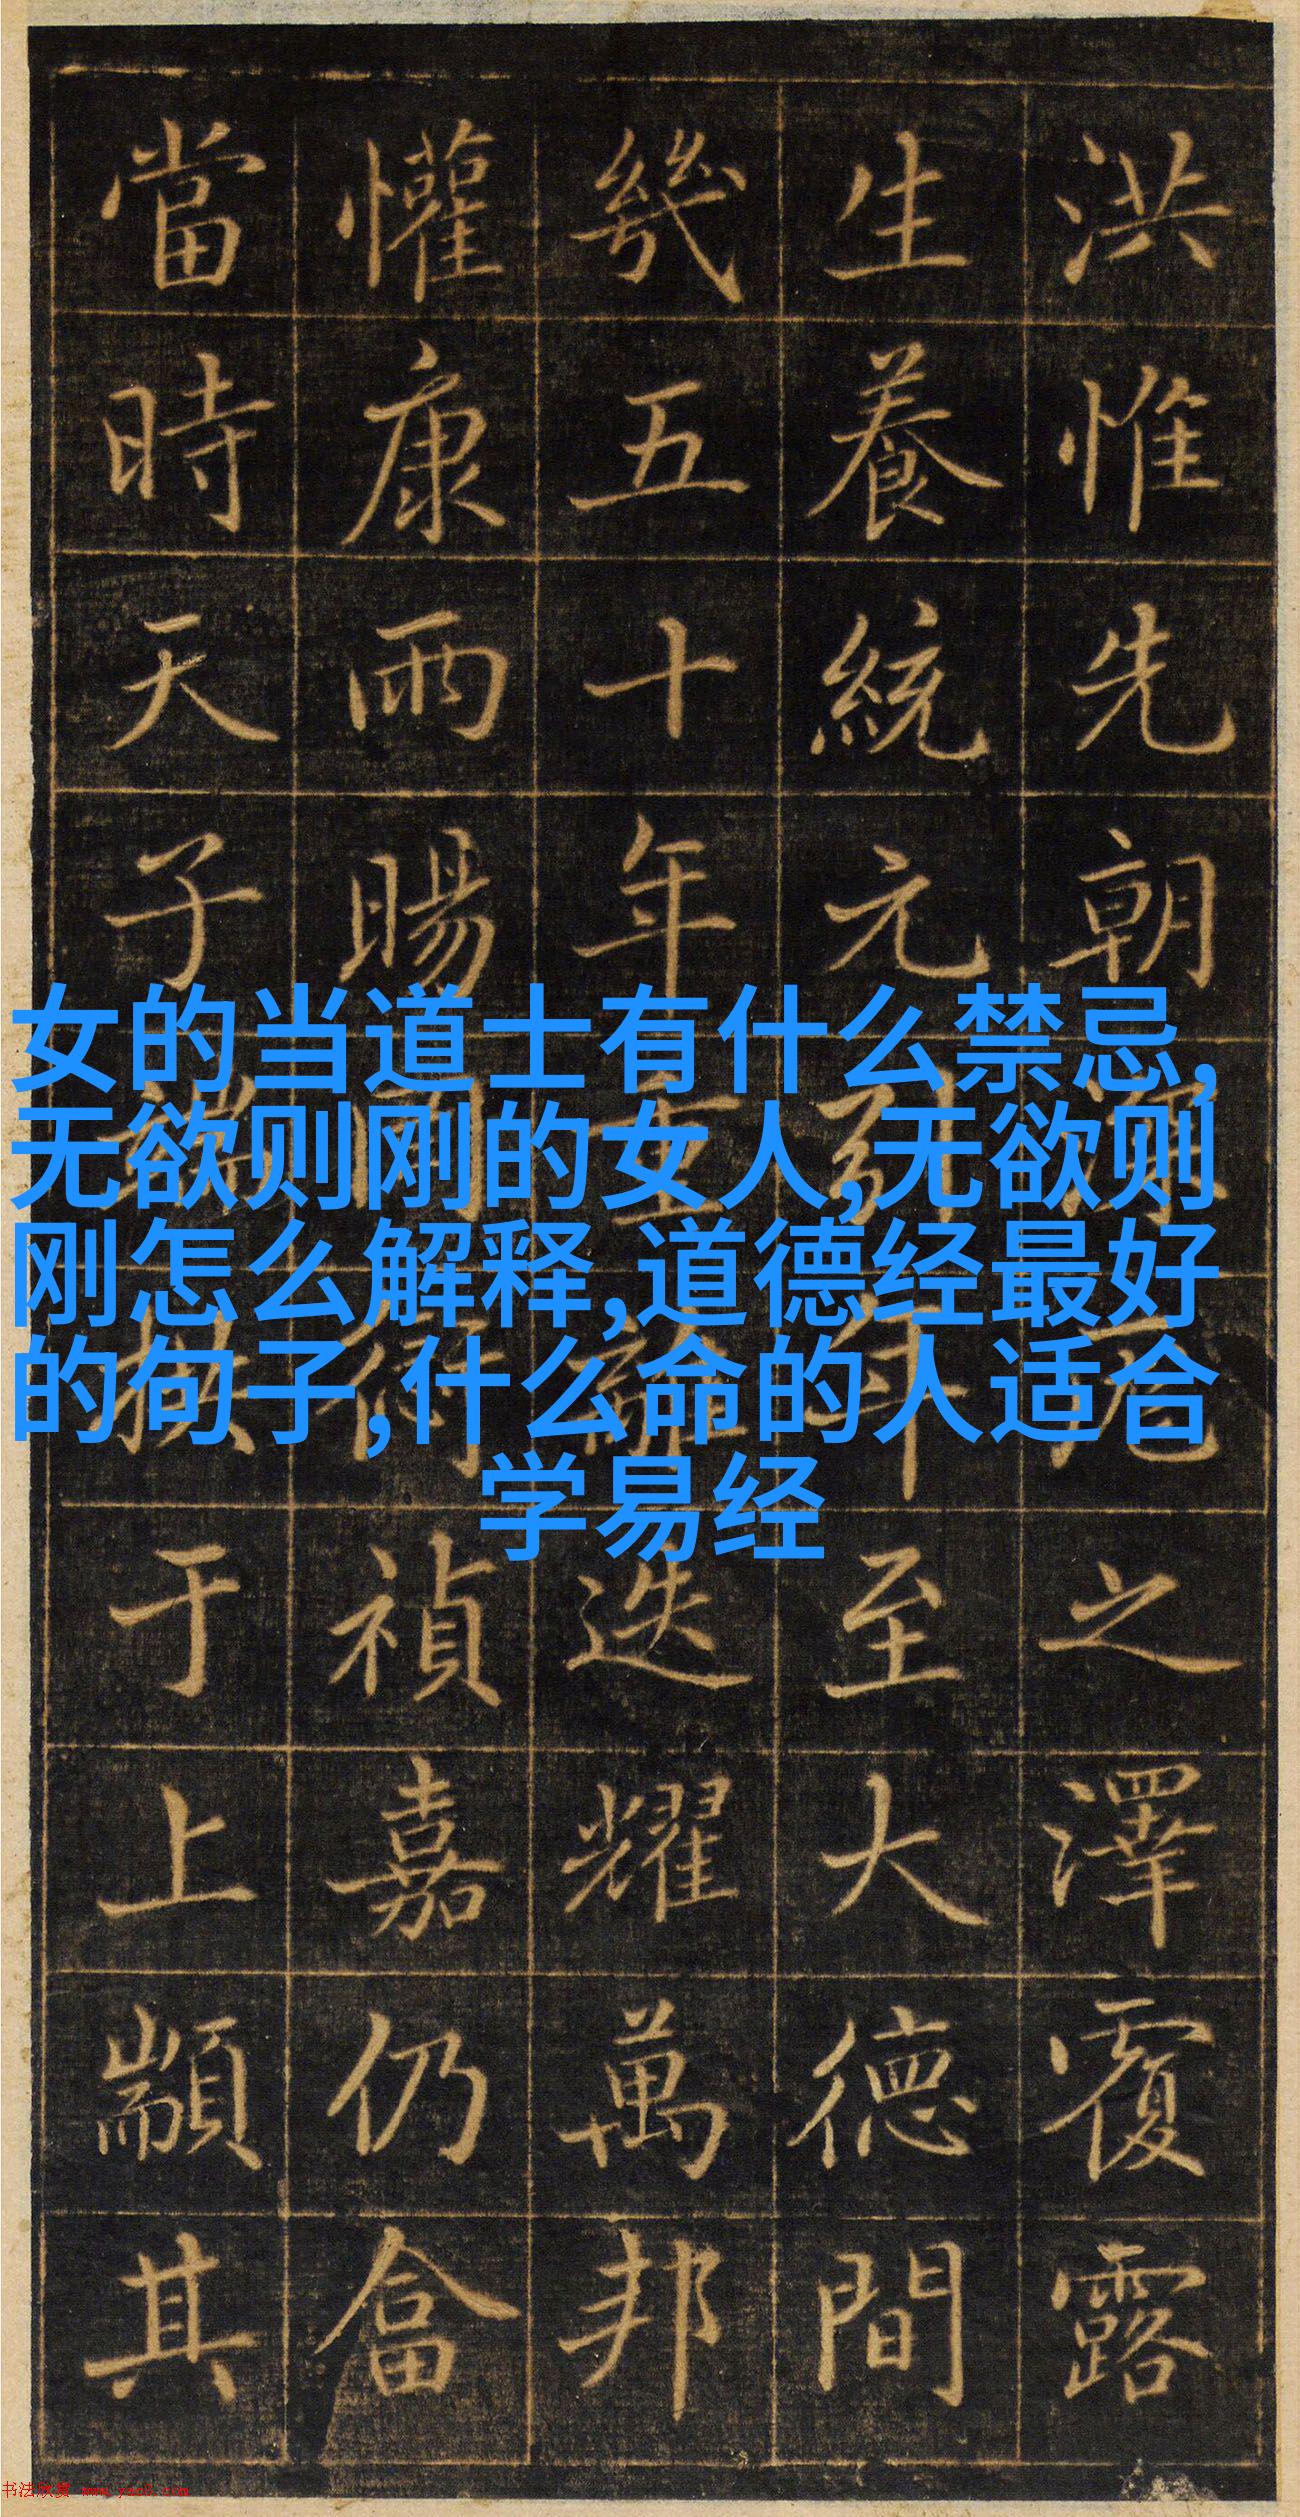 洪惟先朝之澤覆露
生養統元至大德間
幾五十年重迭耀萬邦
懽康雨暘禎嘉仍畣
當時天子端拱于上顒其
女的当道士有什么禁忌,
无欲则刚的女人,无欲则
刚怎么解释,道德经最好
的句子,什么命的人适合
学易经
书法欣赏 www.yac8.com